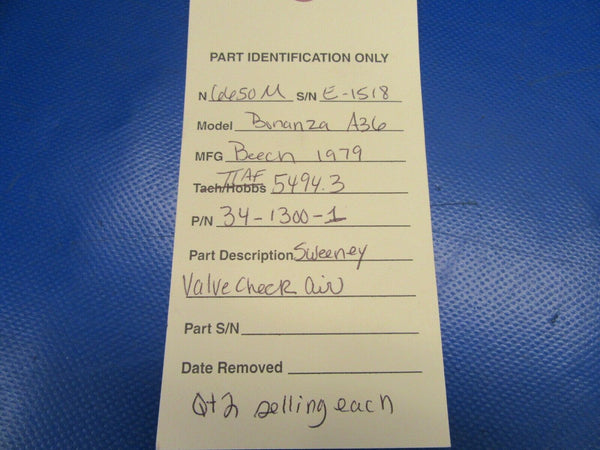 PART IDENTIFICATION ONLY
N 6650M S/N E-1518
Model Bonanza A36
MFG Beech 1979
TTAF
Tach/Hobbs 5494.3
P/N 34-1300-1
Part Description Sweeney
Valve Check Air
Part S/N
Date Removed
Qt 2 selling each